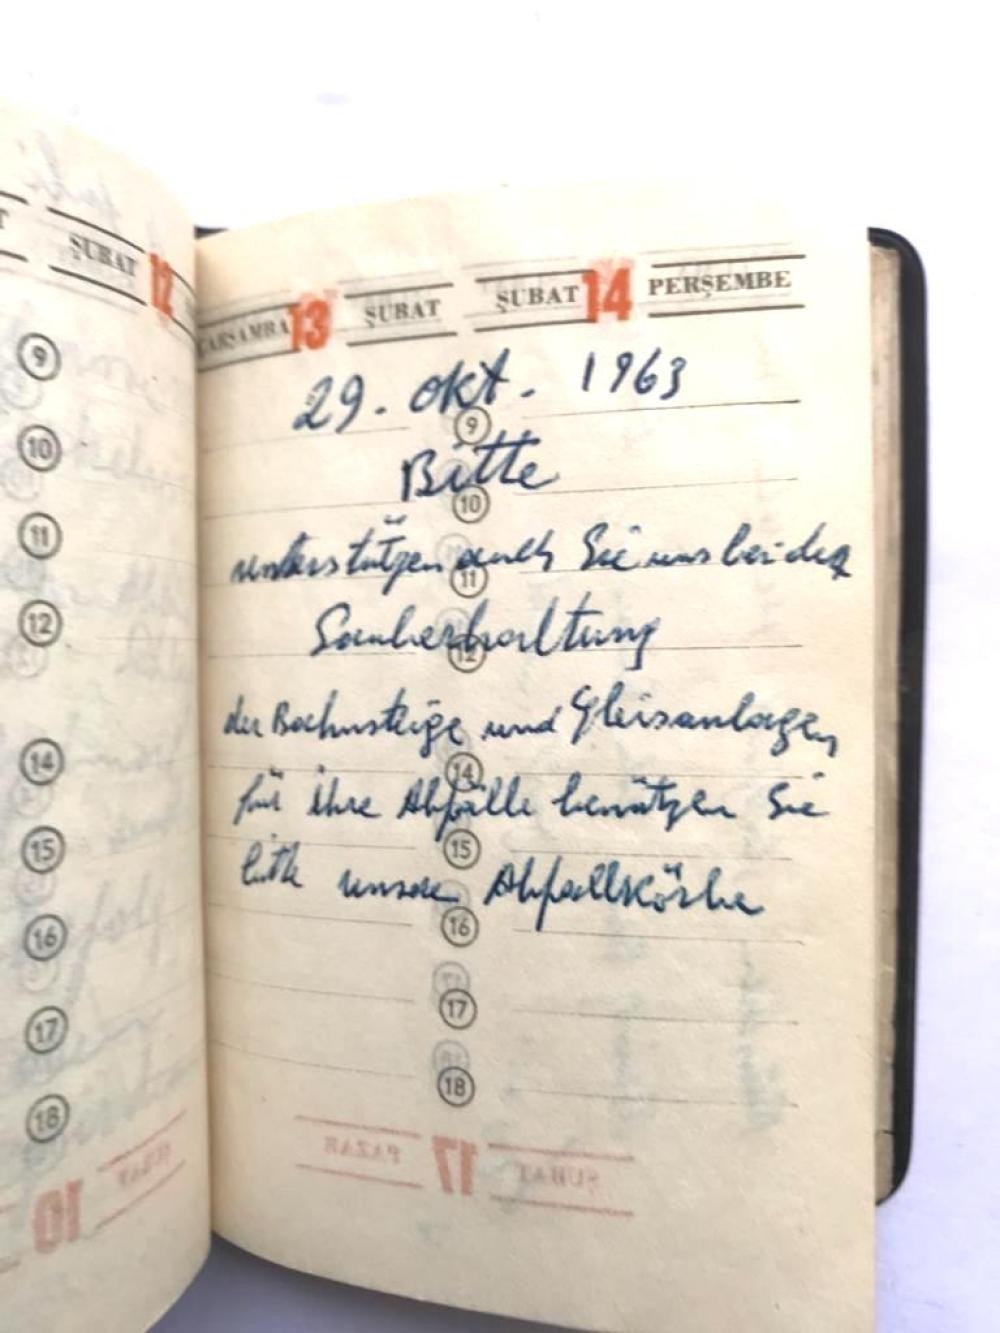 ŞUBAT 12
9
10
11
12
14
15
16
17
18
ÇARŞAMBA 13 ŞUBAT ŞUBAT 14 PERŞEMBE
29. Okt. 1963
9
Bitte
10
unterstützen auch Sie uns bei der
11
Sauberhaltung
12
der Bachnsteige und Gleisanlagen
14
für ihre Abfälle benützen Sie
15
bitte unsere Abfallskörbe
16
17
18
ŞUBAT 17 PAZAR
10 ŞUBAT